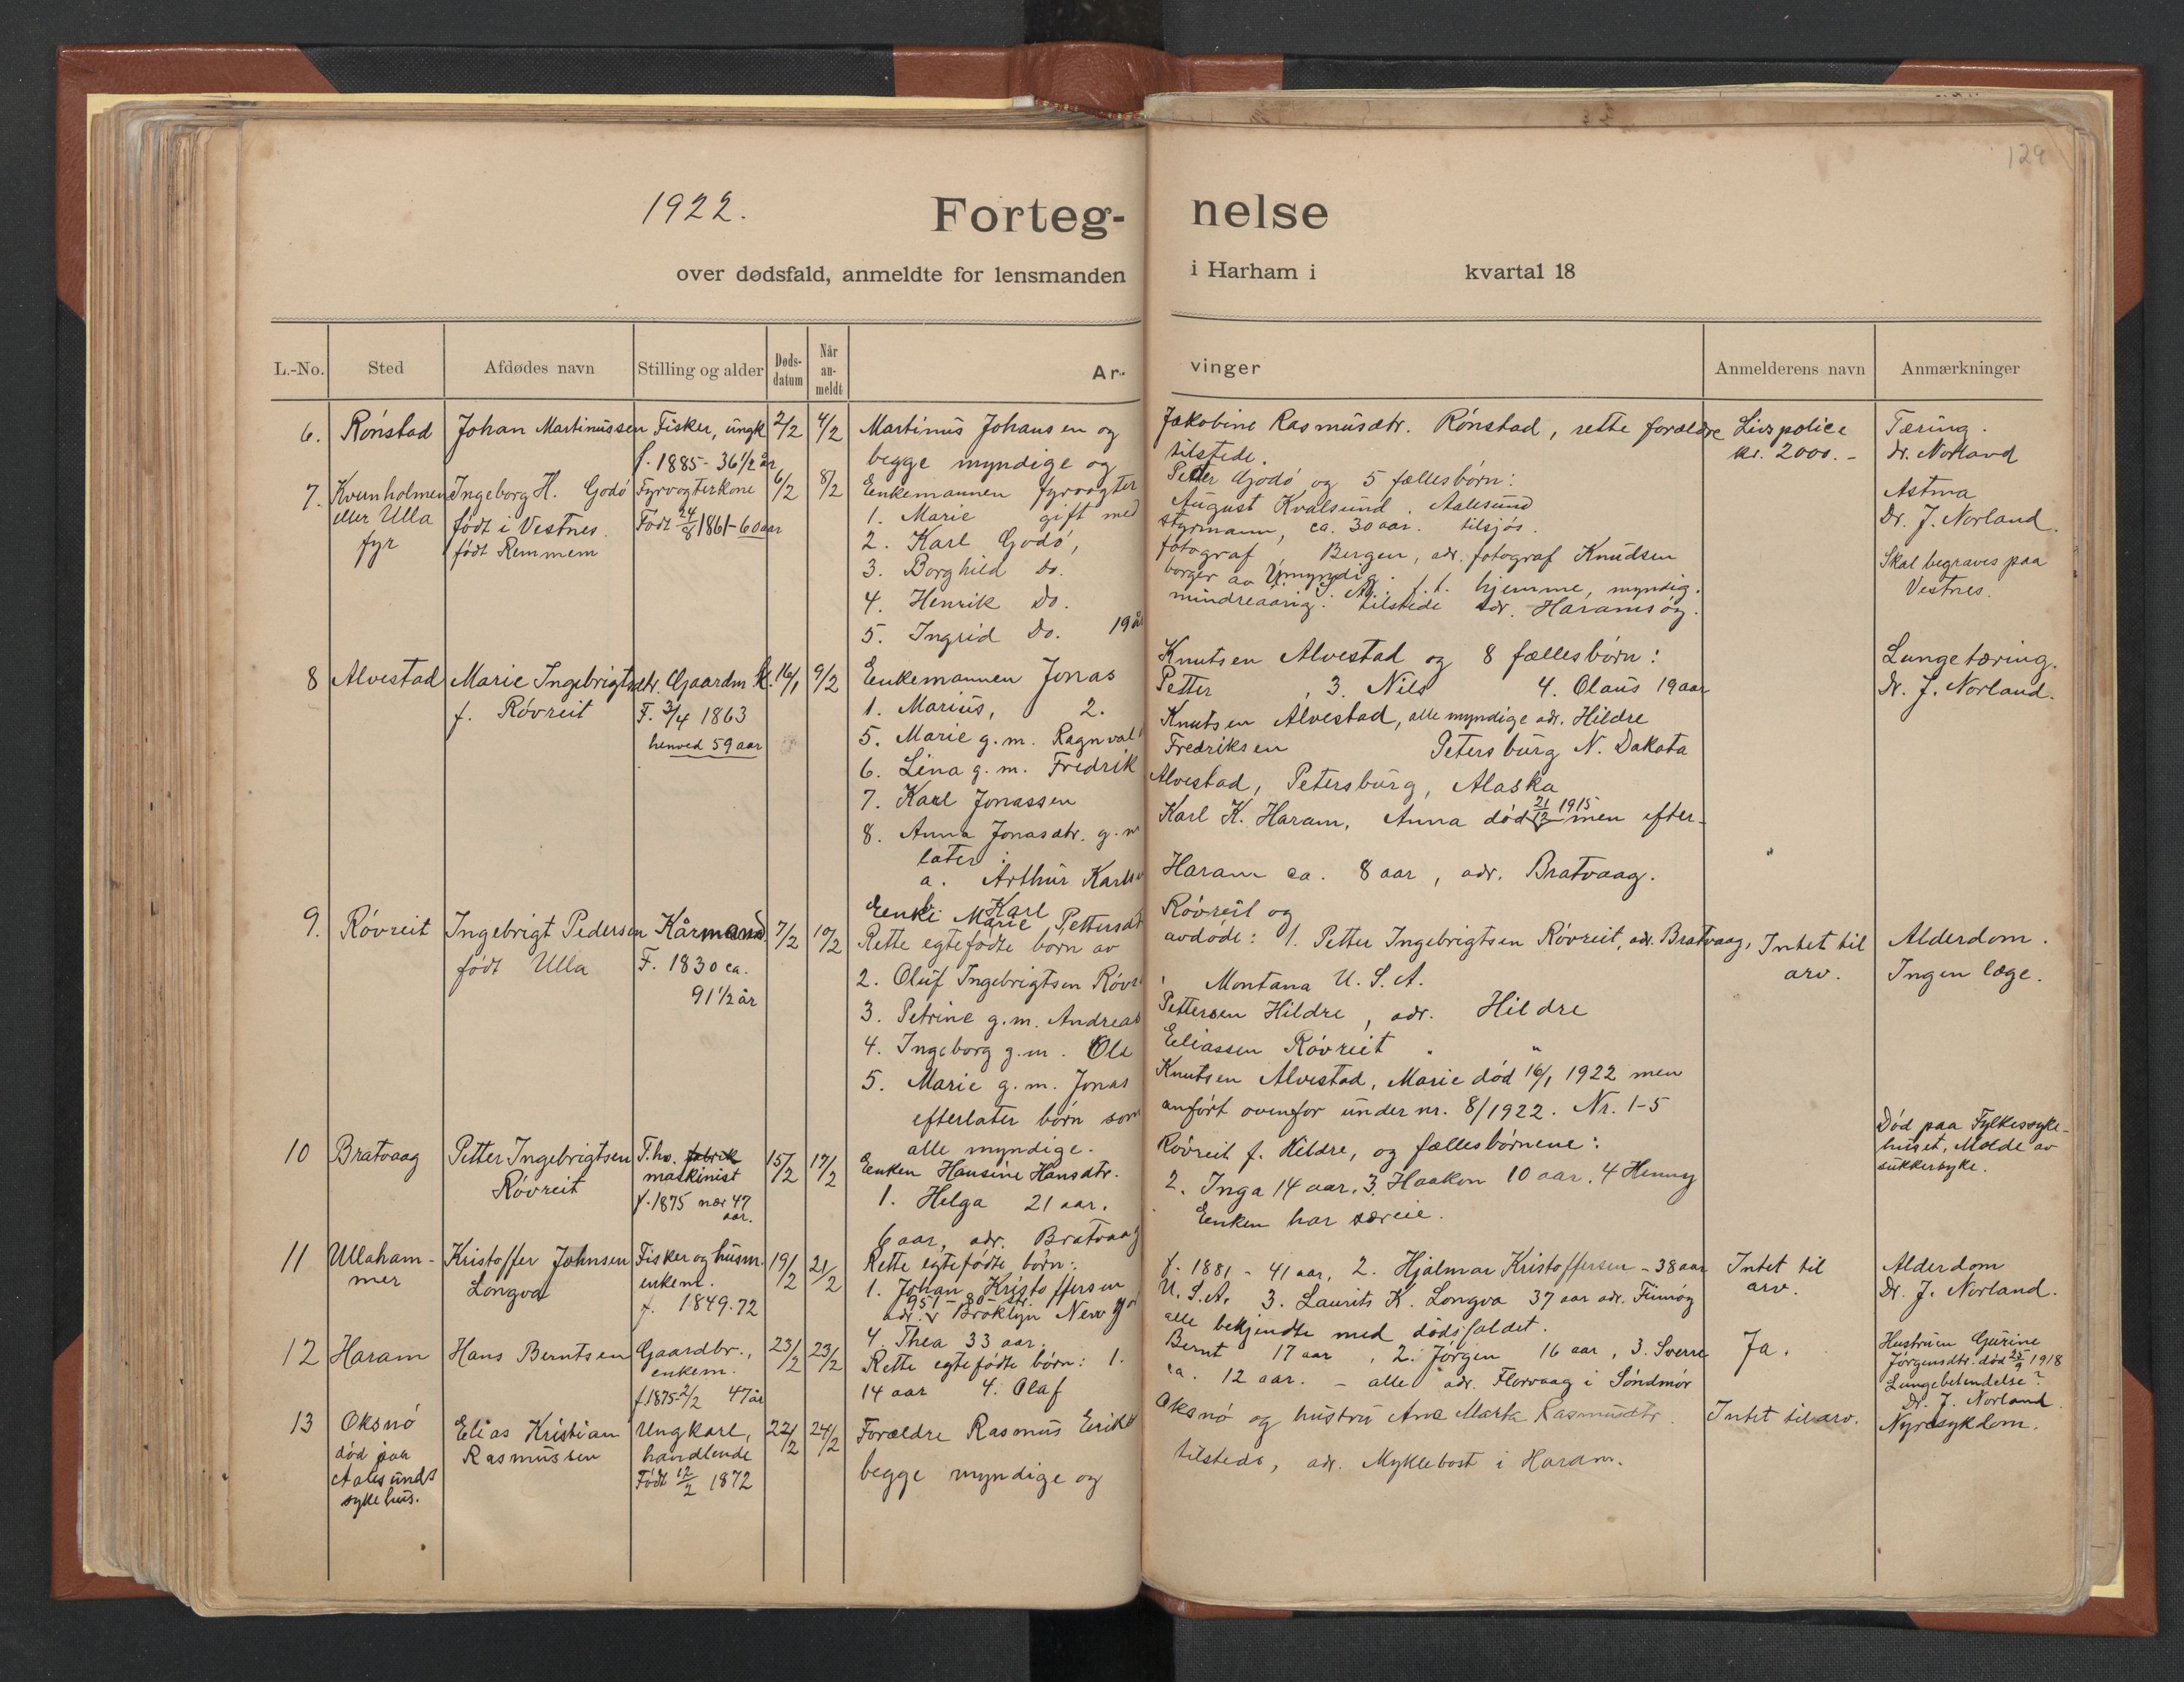 129
1922.
Forteg-nelse
over dødsfald, anmeldte for lensmanden i Harham i kvartal 18
L.-No. Sted Afdødes navn Stilling og alder Døds-datum Når an-meldt Ar-vinger Anmelderens navn Anmærkninger
6. Rönstad Johan Martinussen Fisker, ungk 2/2 4/2 Martinus Johansen og Jakobine Rasmusdtr. Rönstad, rette forældre Livspolice Tæring.
f. 1885 - 36 1/2 år begge myndige og tilstede. kr. 2000.- Dr. Norland
7. Kvernholmen Ingeborg H. Godö Fyrvogterkone 6/2 8/2 Enkemannen fyrvogter Petter Godö og 5 fællesbörn: Astma
eller Ulla född i Vestnes. Födt 24/8 1861 - 60 aar 1. Marie gift med August Kvalsund. Aalesund Dr. J. Norland.
fyr födt Remmem 2. Karl Godö, styrmann, ca. 30 aar. tilsjös.
3. Borghild Do. fotograf Bergen, adr. fotograf Knudsen Skal begraves paa
4. Henrik Do. borger av U.S.A. f.t. hjemme, myndig. Vestnes.
Umyndig.
5. Ingrid Do. 19 år mindreaarig. tilstede adr. Haramsöy.
8 Alvestad Marie Ingebrigtsdtr. Gaardm k. 16/1 9/2 Enkemannen Jonas Knutsen Alvestad og 8 fællesbörn: Lungetæring.
f. Rövreit F. 3/4 1863 1. Marius, 2. Petter, 3. Nils 4. Olaus 19 aar Dr. J. Norland.
henved 59 aar 5. Marie g.m. Ragnvald Knutsen Alvestad, alle myndige adr. Hildre
6. Lina g.m. Fredrik Fredriksen Petersburg N. Dakota
7. Karl Jonassen Alvestad, Petersburg, Alaska
8. Anna Jonasdtr. g.m Karl K. Haram, Anna död 21/12 1915 men efter-
later:
a. Arthur Karlsen Haram ca. 8 aar, adr. Bratvaag.
b. Karl
9. Rövreit Ingebrigt Pedersen Kårmand 7/2 10/2 Enke Marie Pettersdtr Rövreit og
födt Ulla F. 1830 ca. Rette egtefödte börn av avdöde: 1. Petter Ingebrigtsen Rövreit, adr. Bratvaag, Intet til Alderdom.
91 1/2 år 2. Oluf Ingebrigtsen Rövreit Montana U.S.A. arv. Ingen læge.
3. Petrine g.m. Andreas Pettersen Hildre, adr. Hildre
4. Ingeborg g.m. Ole Eliassen Rövreit " "
5. Marie g.m. Jonas Knutsen Alvestad, Marie död 16/1 1922 men
efterlater börn som anfört ovenfor under nr. 8/1922. Nr. 1-5
alle myndige.
10 Bratvaag Petter Ingebrigtsen F.hv. fabrik 15/2 17/2 Enken Hansine Hansdtr. Rövreit f. Hildre, og fællesbörnene: Död paa Fylkessyke-
Rövreit maskinist 1. Helga 21 aar. 2. Inga 14 aar. 3. Haakon 10 aar. 4 Henny huset, Molde av
f. 1875 nær 47 aar. 6 aar, adr. Bratvaag Enken har særeie. sukkersyke.
11 Ullaham- Kristoffer Johnsen Fisker og husm. 19/2 21/2 Rette egtefödte börn: f. 1881 - 41 aar, 2. Hjalmar Kristoffersen - 38 aar Intet til Alderdom
mer Longva enkem. 1. Johan Kristoffersen U.S.A. 3. Laurits K. Longva 37 aar adr. Fjörtoft arv. Dr. J. Norland.
f. 1849. 72 adr. 951 - 80 - str. Broklyn New York
4. Thea 33 aar. alle bekjendte med dödsfaldet.
12 Haram Hans Berntsen Gaardbr., 23/2 23/2 Rette egtefödte börn: 1. Bernt 17 aar, 2. Jörgen 16 aar, 3. Sverre Ja. Hustruen Gurine
enkem. 14 aar 4. Olaf ca. 12 aar. - alle adr. Flervaag i Söndmör Jörgensdtr. död 25/9 1918
f. 1875-2/2 47 år Lungebetendelse?
Dr. J. Norland
13 Oksnö Elias Kristian Ungkarl, 22/2 24/2 Forældre Rasmus Eriks Oksnö og hustru Ane Marta Rasmusdtr. Intet til arv. Nyresykdom.
död paa Rasmussen handlende begge myndige og tilstede, adr. Myklebost i Haram.
Aalesunds Födt 12/2 1872
sykehus.